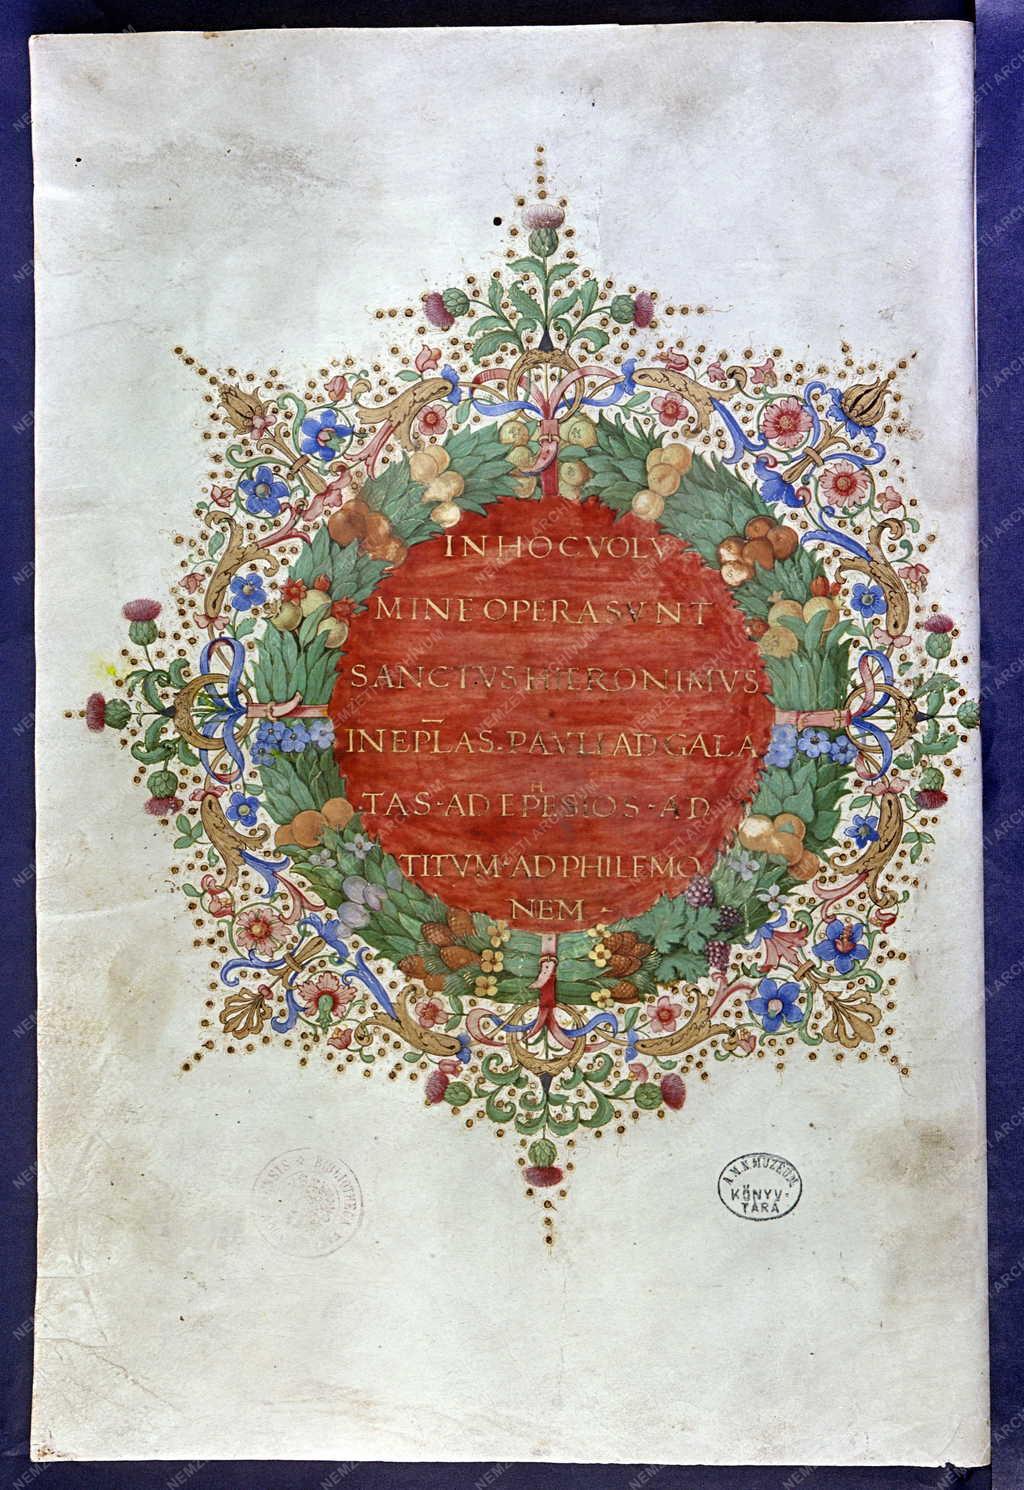 IN HOC VOLV
MINE OPERA SVNT
SANCTVS HIERONIMVS
IN EPL̅AS · PAVLI AD GALA
H
TAS · AD EPESIOS · AD
TITVM · AD PHILEMO
NEM ·
A M. N. MUZEUM
KÖNYV-
TÁRA
NEMZETI ARCHIVUM